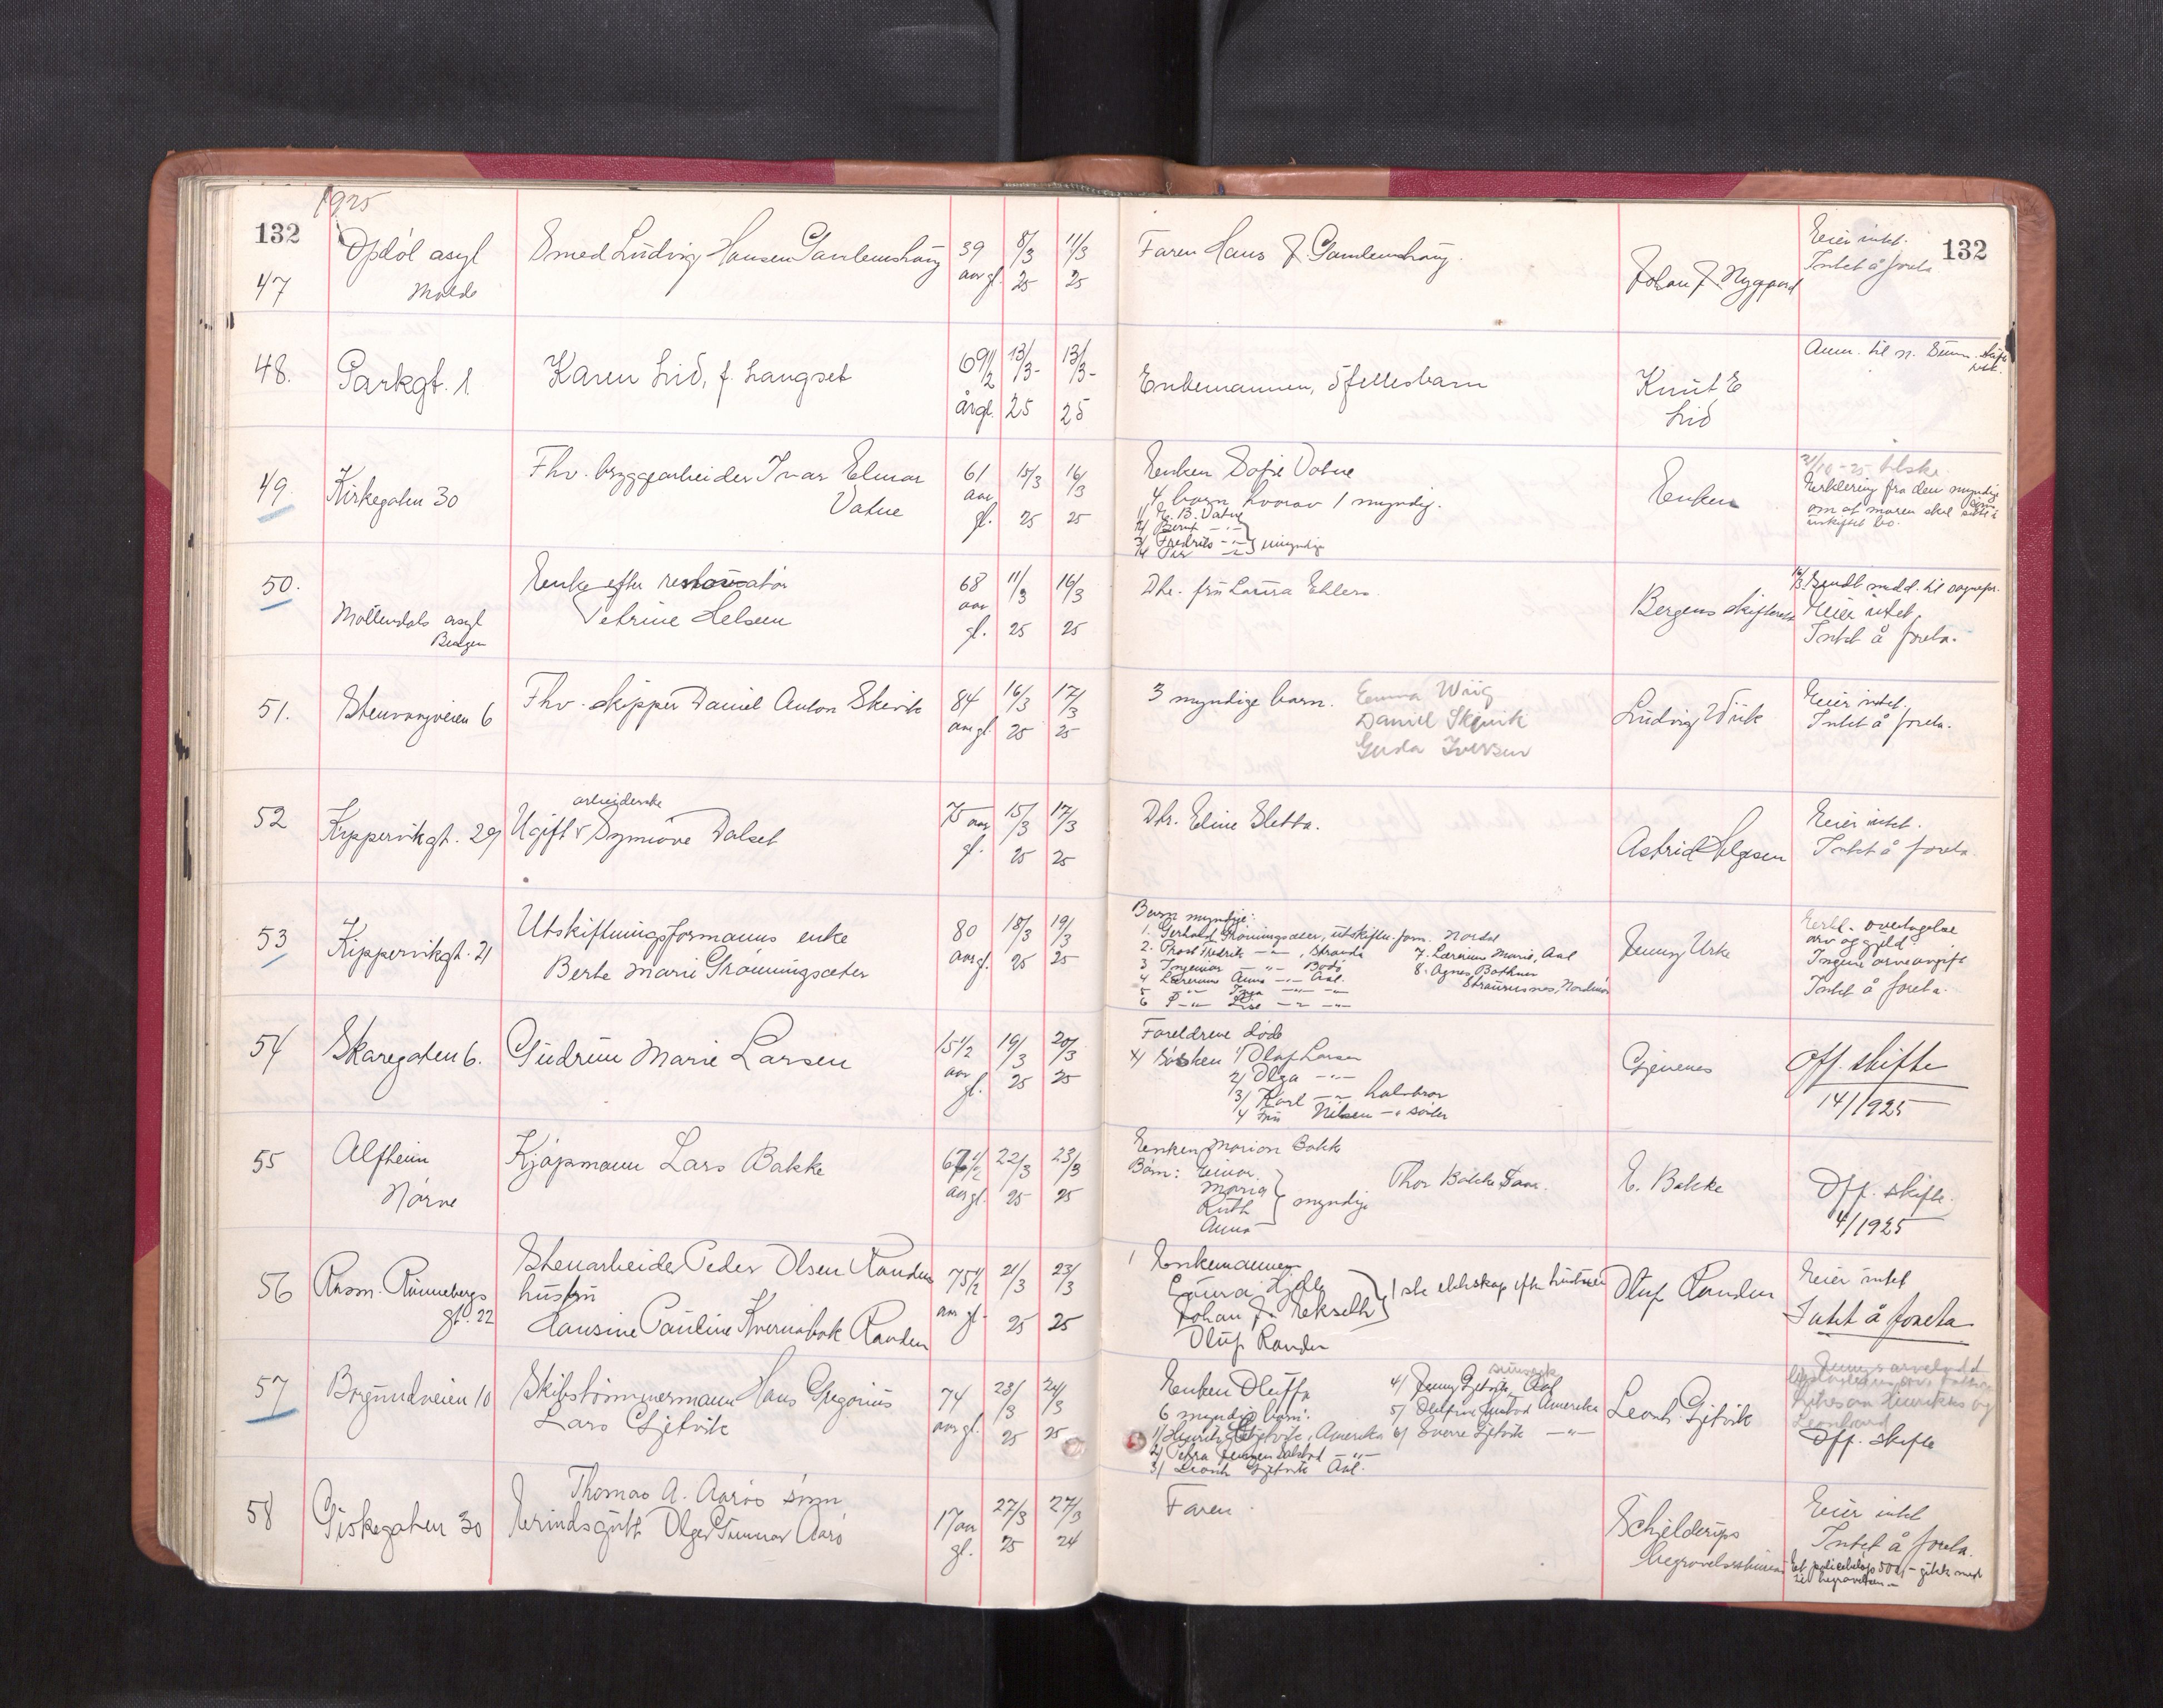 1925
132
47
Opdøl asyl
Molde
Smed Ludvig Hansen Gamlemshaug
39
aar gl.
8/3
25
11/3
25
Faren Hans J. Gamlemshaug.
Johan J. Nygaard
Eier intet.
Intet å foreta
132
48.
Parkgt. 1.
Karen Lid, f. Langset
69 1/2
år gl.
13/3-
25
13/3-
25
Enkemannen, 5 fellesbarn
Knut E
Lid
Anm. til n. Sunm. skifterett.
49.
Kirkegaten 30
Fhv. bryggearbeider Ivar Elmar
Vatne
61
aar
gl.
15/3
25
16/3
25
Enken Sofie Vatne
4 barn hvorav 1 myndig.
1/ E. B. Vatne
2/ Bernt -"-
3/ Fredrik -"- } umyndige
4/ Per -"-
Enken
21/10-25 tilskr.
Erklering fra den myndige sønn
om at moren skal sitte i
uskiftet bo.
50.
Møllendals asyl
Bergen
Enke efter restauratør
Petrine Helsen
68
aar
gl.
11/3
25
16/3
25
Dtr. fru Laura Ehlers.
Bergens skifterett
16/3. Sendt medd. til overfor.
Eier intet.
Intet å foreta.
51.
Stenvaagveien 6
Fhv. skipper Daniel Anton Skevik
84
aar gl.
16/3
25
17/3
25
3 myndige barn.
Emma Wiig
Daniel Skjevik
Gerda Iversen
Ludvig Wiik
Eier intet.
Intet å foreta.
52
Kippervikgt. 29
arbeiderske
Ugift v Synnøve Dalset
75 aar
gl.
15/3
25
17/3
25
Dtr. Eline Sletta.
Astrid Helgesen
Eier intet.
Intet å foreta.
53
Kippervikgt. 21
Utskiftningsformanns enke
Berte Marie Grønningsæter
80
aar gl.
18/3
25
19/3
25
Barn myndige:
1. Gerhard Grønningsæter, utskiftn. form. Nordal
2. Prost Fredrik -"-, Stranda
3 Ingeniør -"- Bodø
4 Lærerinne Anna -"- Aal.
5 -"- Inga -"- -"-
6 F -"- Lise -"- -"-
7. Lærerinne Marie, Aal
8. Agnes Bathen
Straumsnes, Nordmør
Jenny Urke
Erkl. overtagelse
arv og gjeld.
Ingen arveavgift
Intet å foreta.
54
Skaregaten 6.
Gudrun Marie Larsen
15 1/2
aar
gl.
19/3
25
20/3
25
Foreldrene døde
4 søsken 1/ Olaf Larsen
2/ Olga -"-
3/ Karl -"- halvbror
4 Fru Nilsen -"- søster
Gjevenes
Off. skifte
14/1925
55
Alfheim
Nørve
Kjøpmann Lars Bakke
67 1/2
aar gl.
22/3
25
23/3
25
Enken Marion Bakke
Barn: Einar
Maria
Ruth
Anna
} myndige
Thor Bakke
E. Bakke
Off. skifte.
4/1925
56
Rasm. Rønnebergs
gt. 22
Stenarbeider Peder Olsen Randens
hustru
Hansine Pauline Kvernabak Randen
75 1/2
aar gl.
21/3
25
23/3
25
1 Enkemannen
Laura
Johan J. Ekseth
} 1ste ekteskap efter hustruen
Oluf Randen
Oluf Randen
Eier intet
Intet å foreta
57
Borgundveien 10
Skibstømmermann Hans Gregorius
Lars Gjetvik
74
aar gl.
23/3
25
24/3
25
Enken Oluffa
6 myndige barn:
1/ Henrik Gjetvik, Amerika
2/ Petra Jensen -"-
3/ Leonh Gjetvik Aal.
4/ Jenny Gjetvik, Aal
sinnssyk
5/ Amerika
6/ Sverre Gjetvik -"-
Leonh. Gjetvik
Leonhard
Off. skifte
58
Giskegaten 30
Thomas A. Aarøs sønn
Erindsgutt Olger Gunnar Aarø
17 aar
gl.
27/3
25
27/3
24
Faren.
Schjelderups
begravelsesbureau
Eier intet
Intet å foreta.
Et policebeløp 500,- gikk med
til begravelsen.-